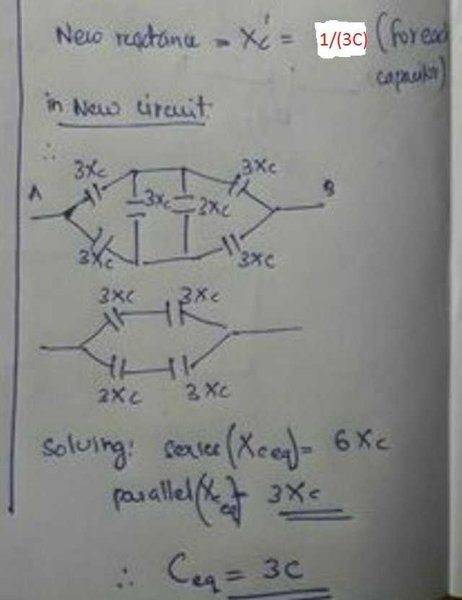 New reactance = Xc' = 1/(3C) (for each
capacitor)
in New circuit.
∴
3Xc 3Xc
A 3Xc 3Xc B
3Xc 3Xc
3Xc 3Xc
3Xc 3Xc
Solving: series (Xceq) = 6Xc
parallel (Xceq) 3Xc
∴ Ceq = 3C